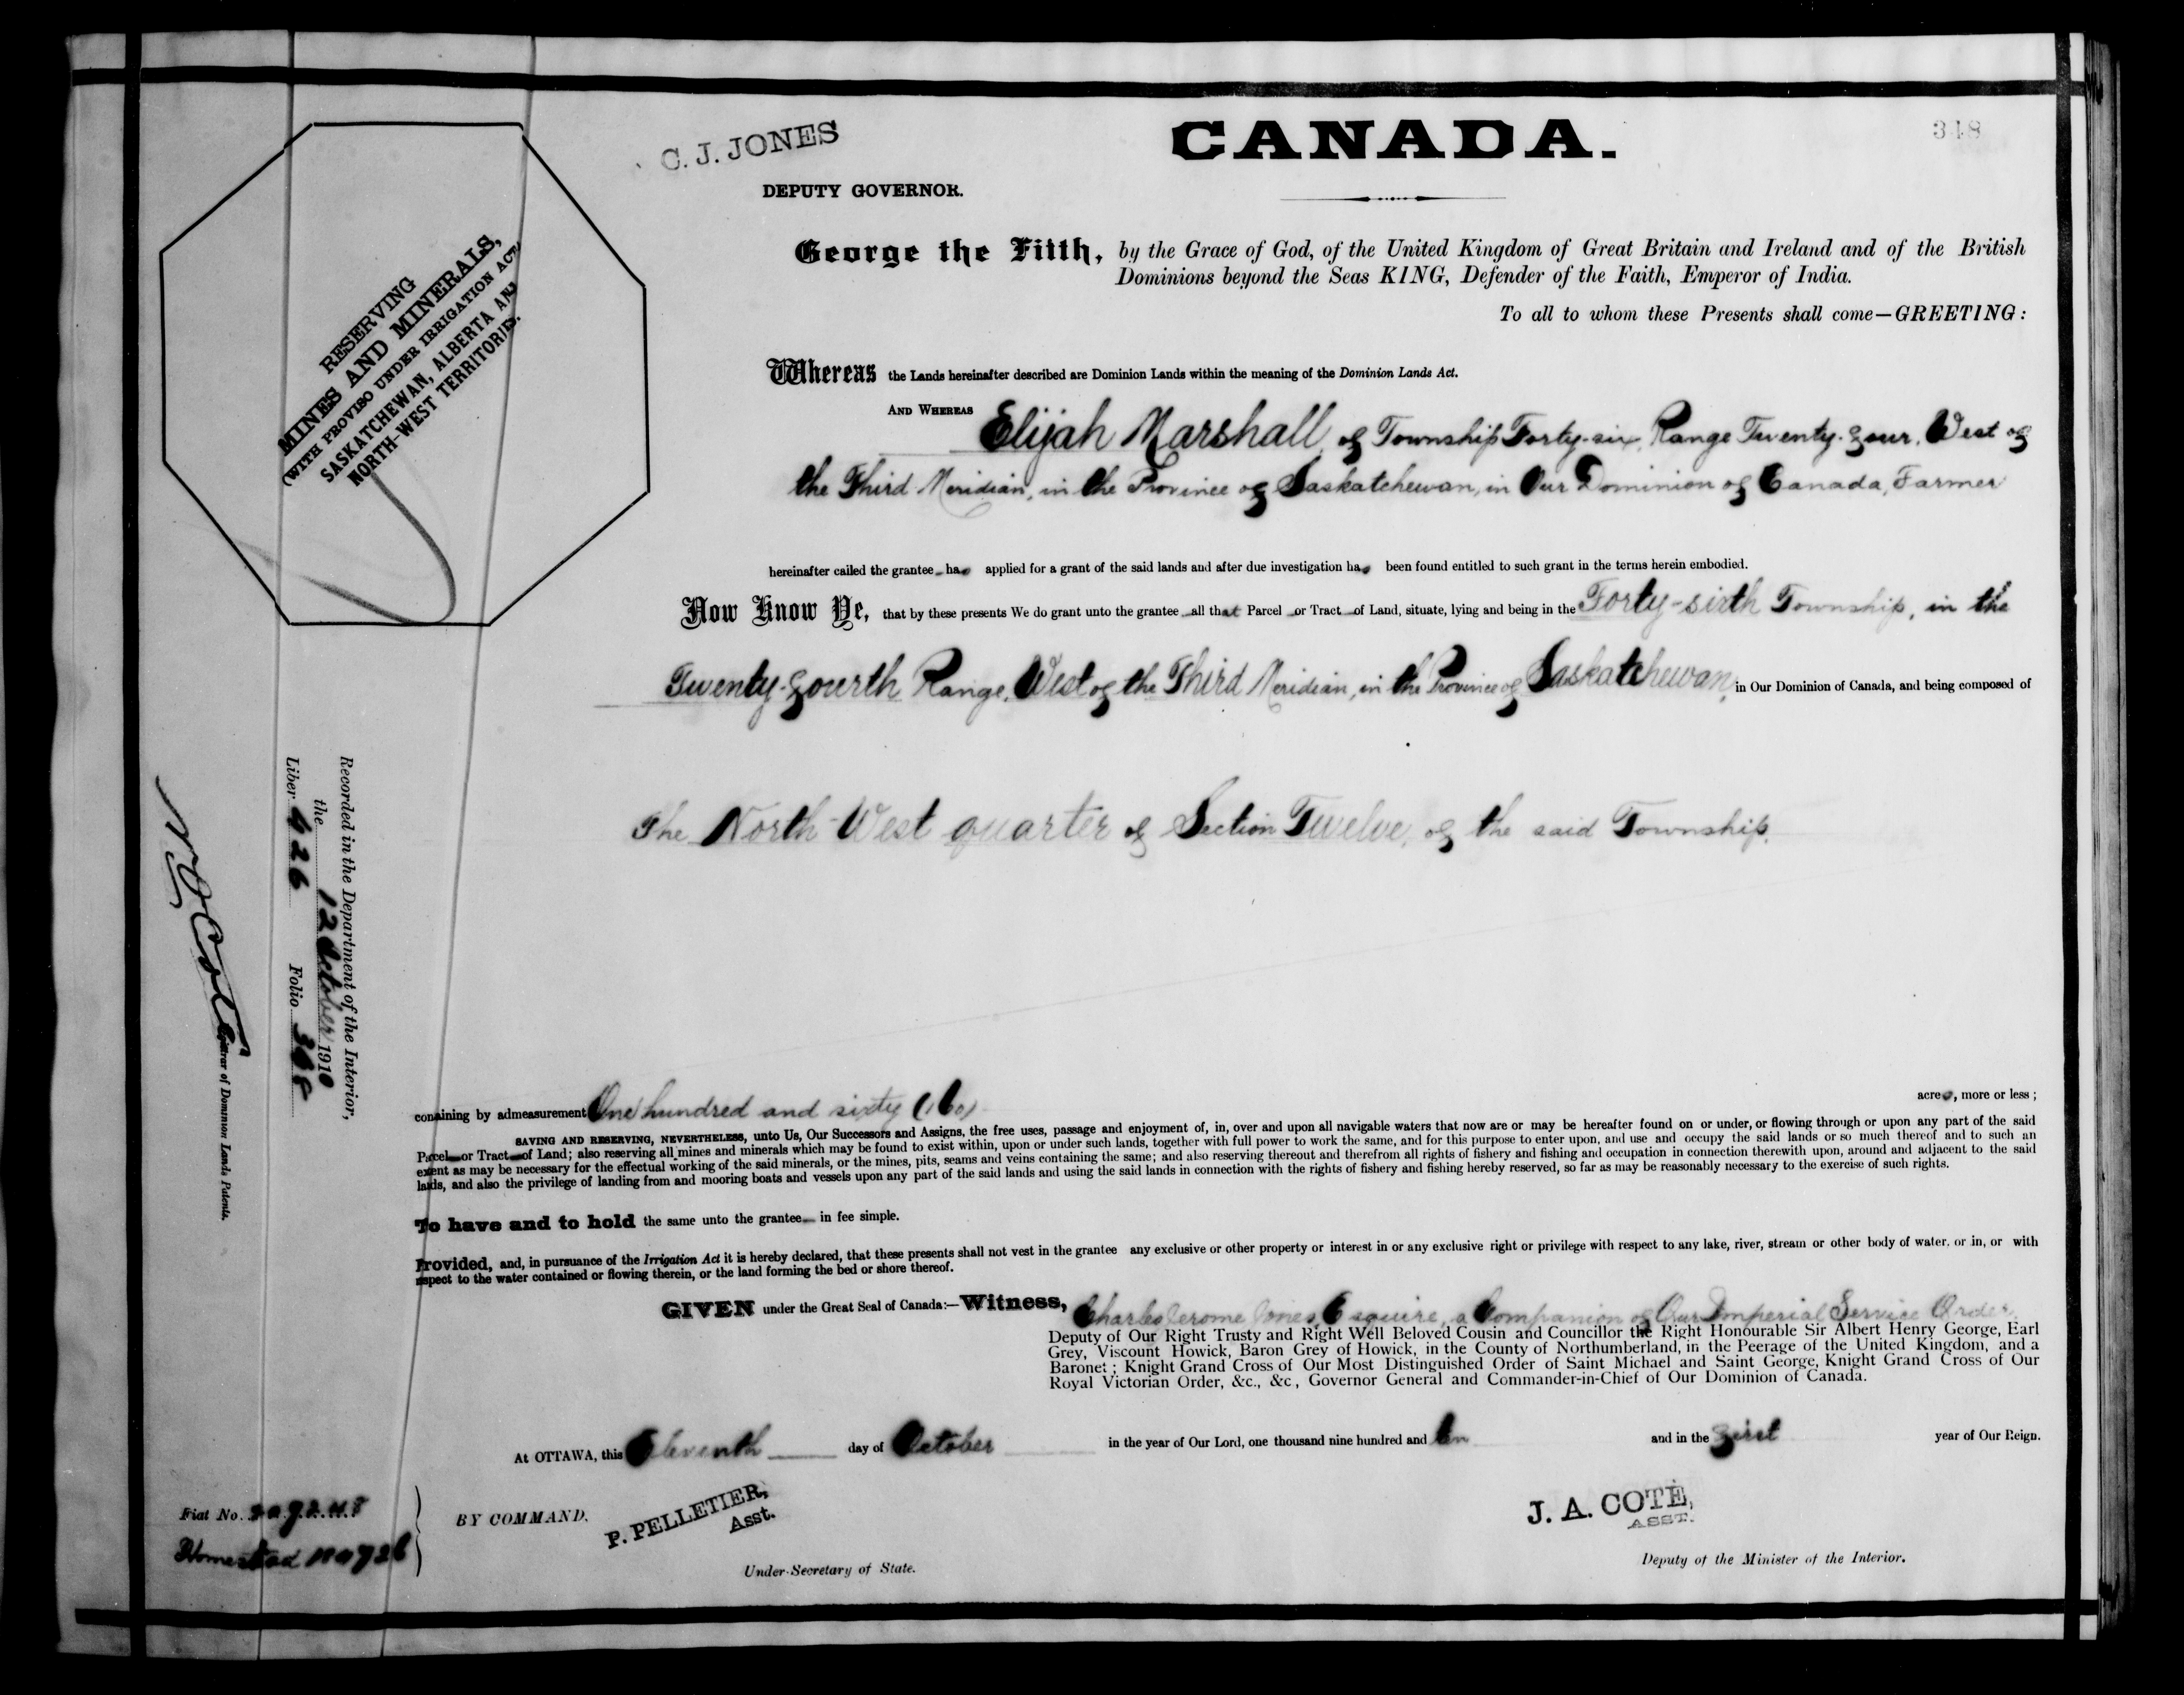 C. J. JONES
DEPUTY GOVERNOR.
CANADA.
348
George the Fifth, by the Grace of God, of the United Kingdom of Great Britain and Ireland and of the British
Dominions beyond the Seas KING, Defender of the Faith, Emperor of India.
To all to whom these Presents shall come—GREETING:
Whereas the Lands hereinafter described are Dominion Lands within the meaning of the Dominion Lands Act.
AND WHEREAS Elijah Marshall, of Township Forty-six, Range Twenty-four, West of
the Third Meridian, in the Province of Saskatchewan, in Our Dominion of Canada, Farmer
hereinafter called the grantee has applied for a grant of the said lands and after due investigation has been found entitled to such grant in the terms herein embodied.
Now Know Ye, that by these presents We do grant unto the grantee all that Parcel or Tract of Land, situate, lying and being in the Forty-sixth Township, in the
Twenty-fourth Range, West of the Third Meridian, in the Province of Saskatchewan, in Our Dominion of Canada, and being composed of
The North-West quarter of Section Twelve, of the said Township.
containing by admeasurement One hundred and sixty (160) acres, more or less;
SAVING AND RESERVING, NEVERTHELESS, unto Us, Our Successors and Assigns, the free uses, passage and enjoyment of, in, over and upon all navigable waters that now are or may be hereafter found on or under, or flowing through or upon any part of the said
Parcel or Tract of Land; also reserving all mines and minerals which may be found to exist within, upon or under such lands, together with full power to work the same, and for this purpose to enter upon, and use and occupy the said lands or so much thereof and to such an
extent as may be necessary for the effectual working of the said minerals, or the mines, pits, seams and veins containing the same; and also reserving thereout and therefrom all rights of fishery and fishing and occupation in connection therewith upon, around and adjacent to the said
lands, and also the privilege of landing from and mooring boats and vessels upon any part of the said lands and using the said lands in connection with the rights of fishery and fishing hereby reserved, so far as may be reasonably necessary to the exercise of such rights.
To have and to hold the same unto the grantee in fee simple.
Provided, and, in pursuance of the Irrigation Act it is hereby declared, that these presents shall not vest in the grantee any exclusive or other property or interest in or any exclusive right or privilege with respect to any lake, river, stream or other body of water, or in, or with
respect to the water contained or flowing therein, or the land forming the bed or shore thereof.
GIVEN under the Great Seal of Canada:—Witness, Charles Jerome Jones, Esquire, a Companion of Our Imperial Service Order,
Deputy of Our Right Trusty and Right Well Beloved Cousin and Councillor the Right Honourable Sir Albert Henry George, Earl
Grey, Viscount Howick, Baron Grey of Howick, in the County of Northumberland, in the Peerage of the United Kingdom, and a
Baronet; Knight Grand Cross of Our Most Distinguished Order of Saint Michael and Saint George, Knight Grand Cross of Our
Royal Victorian Order, &c., &c., Governor General and Commander-in-Chief of Our Dominion of Canada.
At OTTAWA, this Eleventh day of October in the year of Our Lord, one thousand nine hundred and ten and in the first year of Our Reign.
BY COMMAND.
P. PELLETIER,
Asst.
Under-Secretary of State.
J. A. COTÉ,
ASST.
Deputy of the Minister of the Interior.
Fiat No.
Homestead
RESERVING
MINES AND MINERALS,
(WITH PROVISO UNDER IRRIGATION ACT,
SASKATCHEWAN, ALBERTA AND
NORTH-WEST TERRITORIES.
Recorded in the Department of the Interior,
the 12 October 1910
Liber 426 Folio 348
Registrar of Dominion Lands Patents.